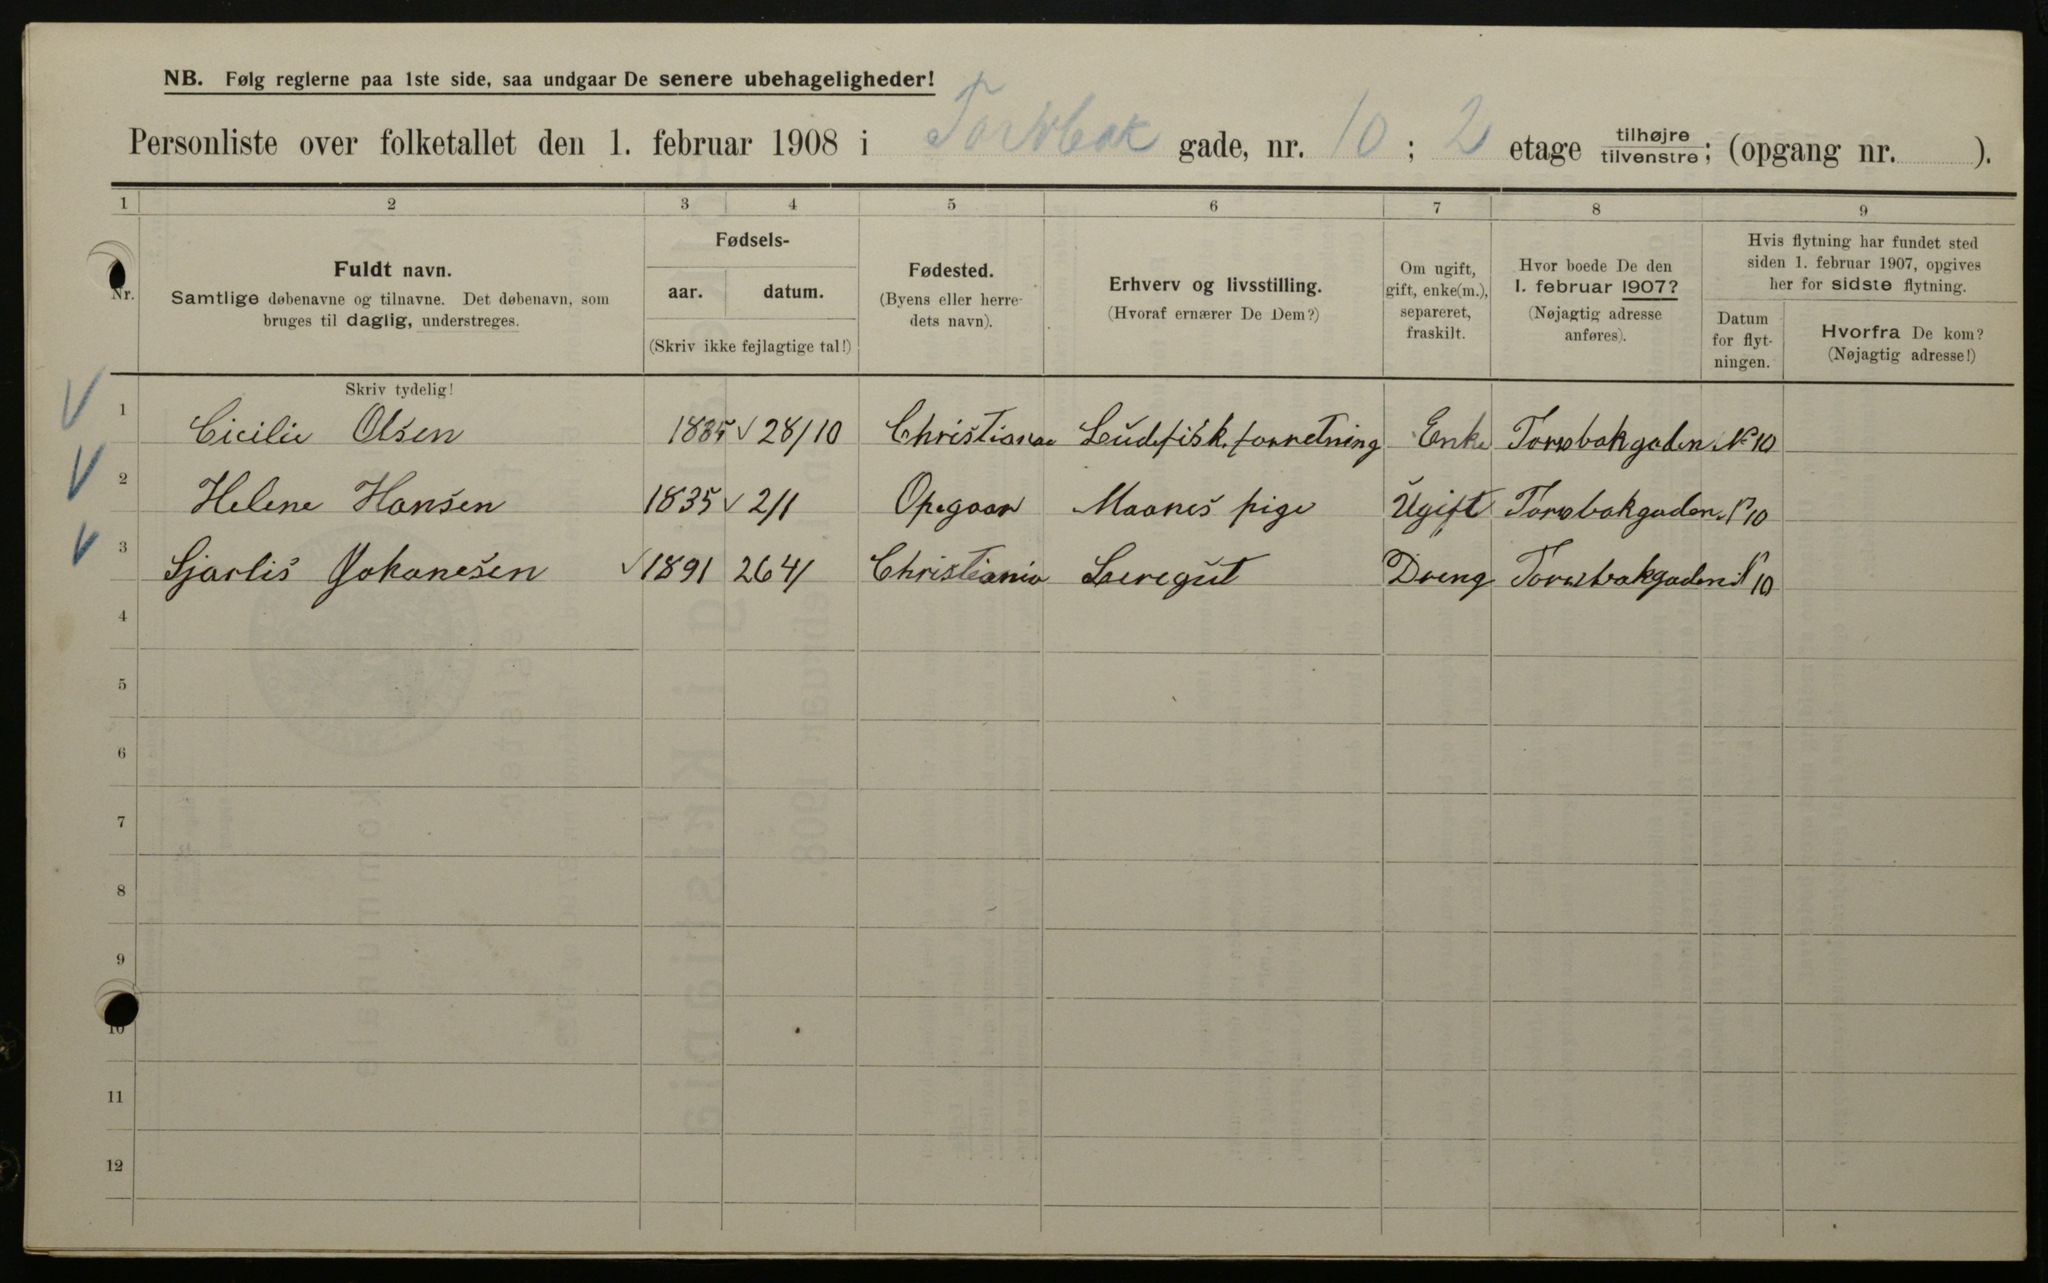 NB. Følg reglerne paa 1ste side, saa undgaar De senere ubehageligheder!
Personliste over folketallet den 1. februar 1908 i Torvbak gade, nr. 10 ; 2 etage tilhøjre tilvenstre; (opgang nr. ).
1 2 3 4 5 6 7 8 9
Nr.
Fuldt navn.
Samtlige døbenavne og tilnavne. Det døbenavn, som
bruges til daglig, understreges.
Skriv tydelig!
Fødsels-
aar. datum.
(Skriv ikke fejlagtige tal!)
Fødested.
(Byens eller herre-
dets navn).
Erhverv og livsstilling.
(Hvoraf ernærer De Dem?)
Om ugift,
gift, enke(m.),
separeret,
fraskilt.
Hvor boede De den
1. februar 1907?
(Nøjagtig adresse
anføres).
Hvis flytning har fundet sted
siden 1. februar 1907, opgives
her for sidste flytning.
Datum
for flyt-
ningen.
Hvorfra De kom?
(Nøjagtig adresse!)
1 Cicilie Olsen 1835 28/10 Christiania Ludefisk. forretning Enke Torvbakgaden No 10
2 Helene Hansen 1835 2/1 Opegaar Maanes pige Ugift Torvbakgaden No 10
3 Sjarlis Johanesen 1891 Christiania Leregut Dreng Torvbakgaden No 10
4
5
6
7
8
9
10
11
12